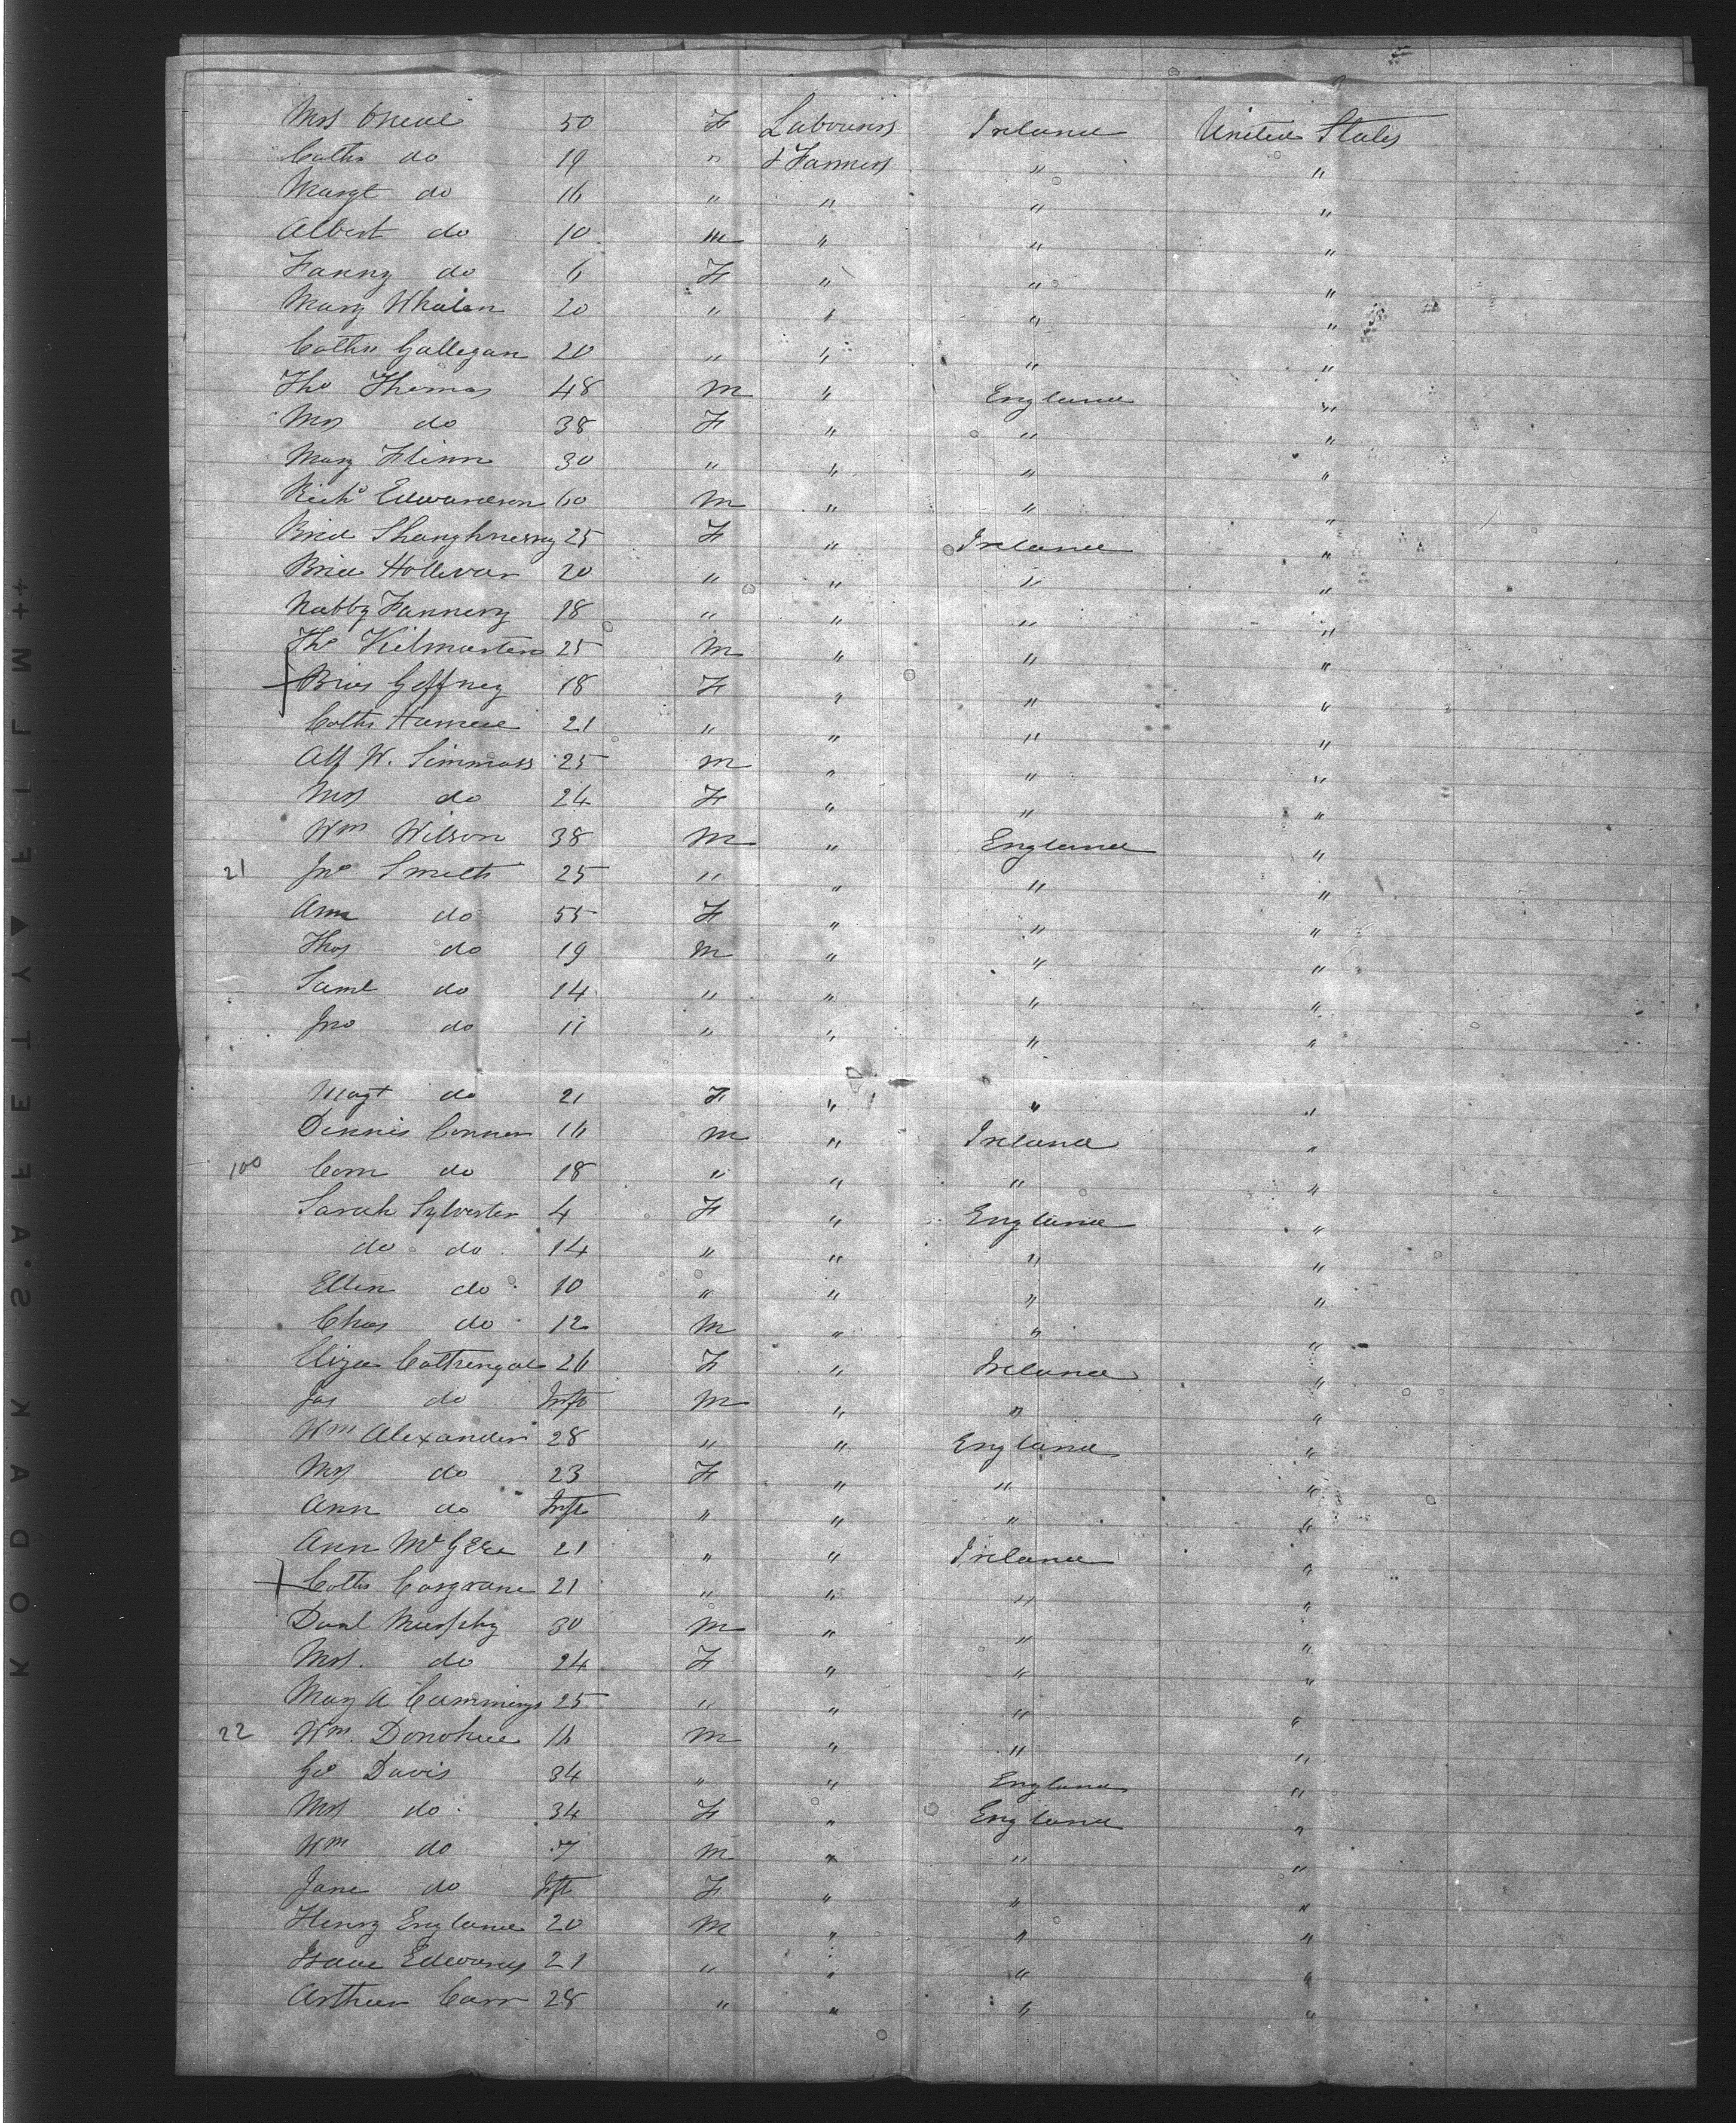 Mrs O'Neal 50 F Labourers Ireland United States
Cath do 19 " & Farmers " "
Margt do 16 " " " "
Albert do 10 M " " "
Fanny do 6 F " " "
Mary Whalen 20 " " " "
Cathe Gallegan 20 " " " "
Tho Thomas 48 M " England "
Mrs do 38 F " " "
Mary Flinn 30 " " " "
Richd Edwardson 60 M " " "
Brid Shaughnessy 25 F " Ireland "
Brid Hollivan 20 " " " "
Nabby Fannery 18 " " " "
Tho Kilmartin 25 M " " "
Brid Geffney 18 F " " "
Cath 21 " " " "
Alf W. Simmoss 25 M " " "
Mrs do 24 F " " "
Wm Wilson 38 M " England "
21 Jno Smith 25 " " " "
Ann do 55 F " " "
Thos do 19 M " " "
Saml do 14 " " " "
Jno do 11 " " " "
Magt do 21 F " " "
Dennis Connor 16 M " Ireland "
100 Corn do 18 " " " "
Sarah Sylvester 4 F " England "
do do 14 " " " "
Ellen do 10 " " " "
Chas do 12 M " " "
Eliza 26 F " Ireland "
Jas do Inft M " " "
Wm Alexander 28 " " England "
Mrs do 23 F " " "
Ann do Inft " " " "
Ann McGee 21 " " Ireland "
Cath Cosgrane 21 " " " "
Danl Murphy 30 M " " "
Mrs. do 24 F " " "
Mary A Cummings 25 " " " "
22 Wm. Donohue 16 M " " "
Geo Davis 34 " " England "
Mrs do 34 F " England "
Wm do 7 M " " "
Jane do Inft F " " "
Henry England 20 M " " "
Isaac Edwards 21 " " " "
Arthur Carr 28 " " " "
KODAK S.A.FETY ▲ FILM ++